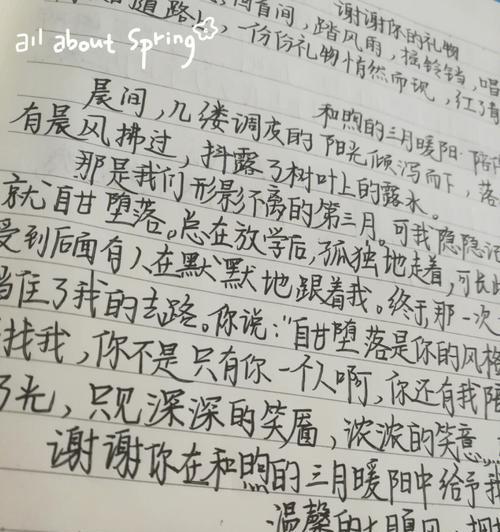 谢谢你的礼物
all about Spring
随路上,
首间,踏风雨,摇铃铛,唱
一份份礼物悄然而现,红了
和煦的三月暖阳·陪
晨间,几缕调皮的阳光倾泻而下,落
有晨风拂过,抖露了树叶上的露水。
那是我们形影不离的第三月。可我隐隐记
就自甘堕落。总在放学后,孤独地走着,可长此
受到后面有人在默默地跟着我。终于,那一次
挡住了我的去路。你说:“自甘堕落是你的风格
找我,你不是只有你一个人啊,你还有我陪
了光,只见深深的笑靥,浓浓的笑意
谢谢你在和煦的三月暖阳中给予我
温馨的一瞬间,